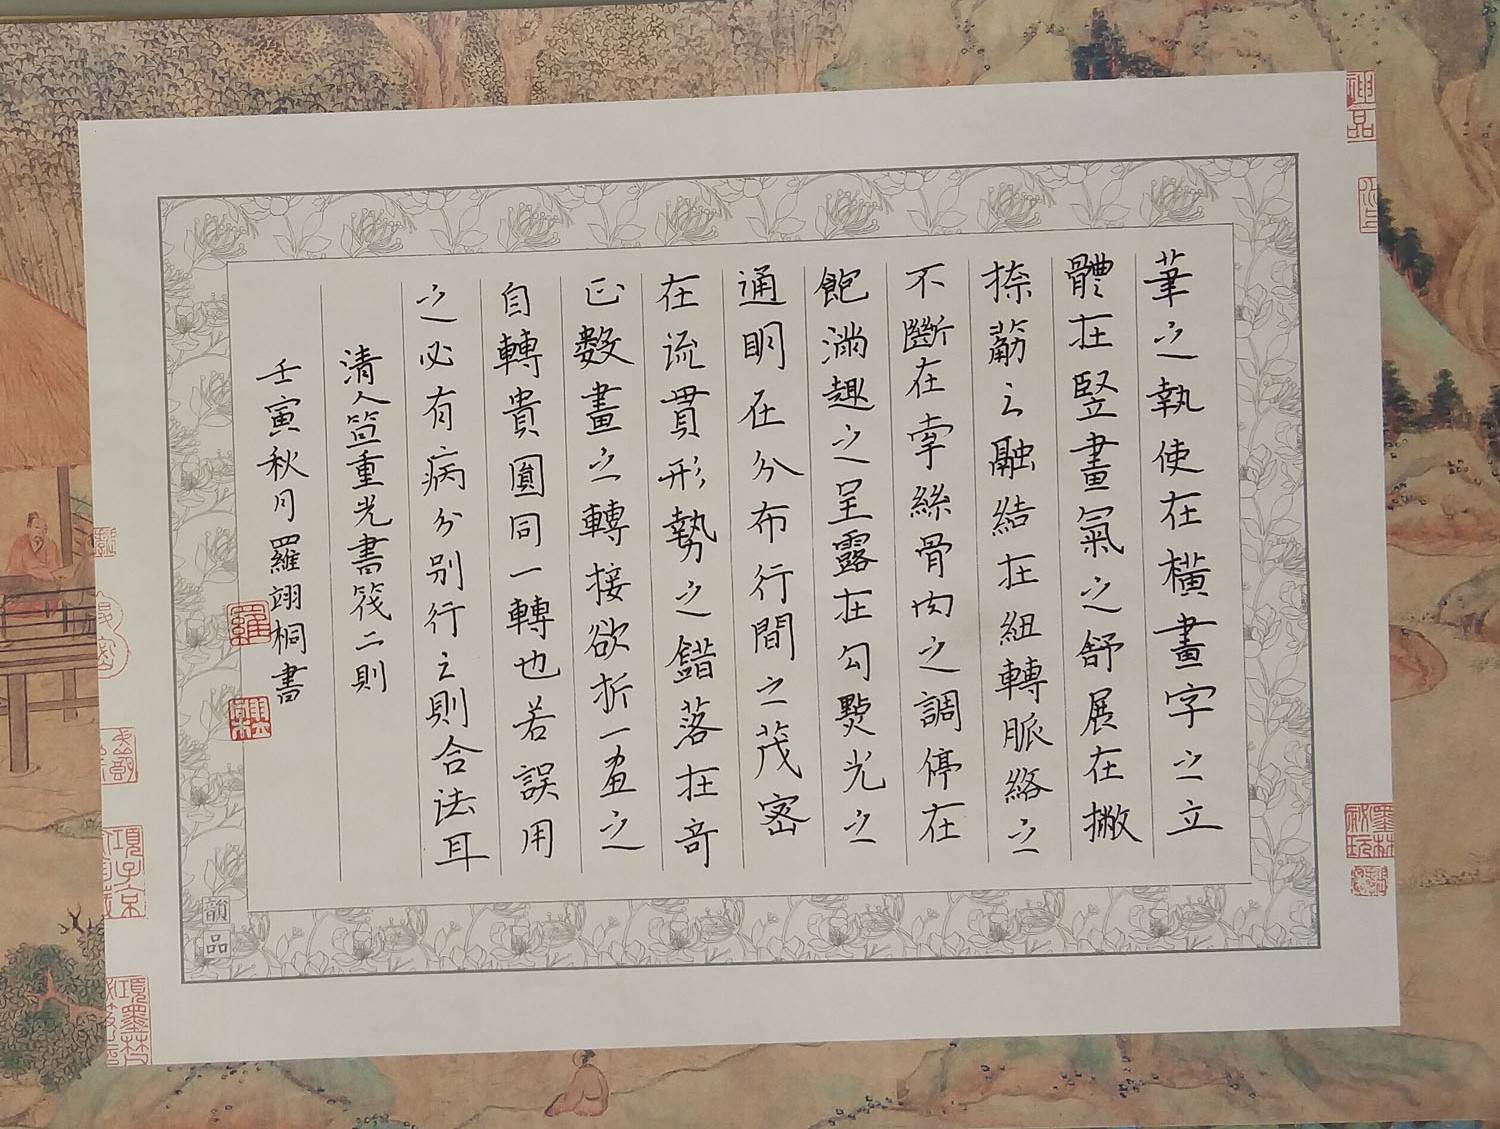 筆之執使在橫畫字之立
體在竪畫氣之舒展在撇
捺筋之融結在紐轉脈絡之
不斷在牽絲骨肉之調停在
飽滿趣之呈露在勾㸃光之
通明在分布行間之茂密
在流貫形勢之錯落在奇
正數畫之轉接欲折一畫之
自轉貴圓同一轉也若誤用
之必有病分别行之則合法耳
清人笪重光書筏二則
壬寅秋月羅翊桐書
羅
韻品
神品
項子京
項墨林
墨林
秘玩